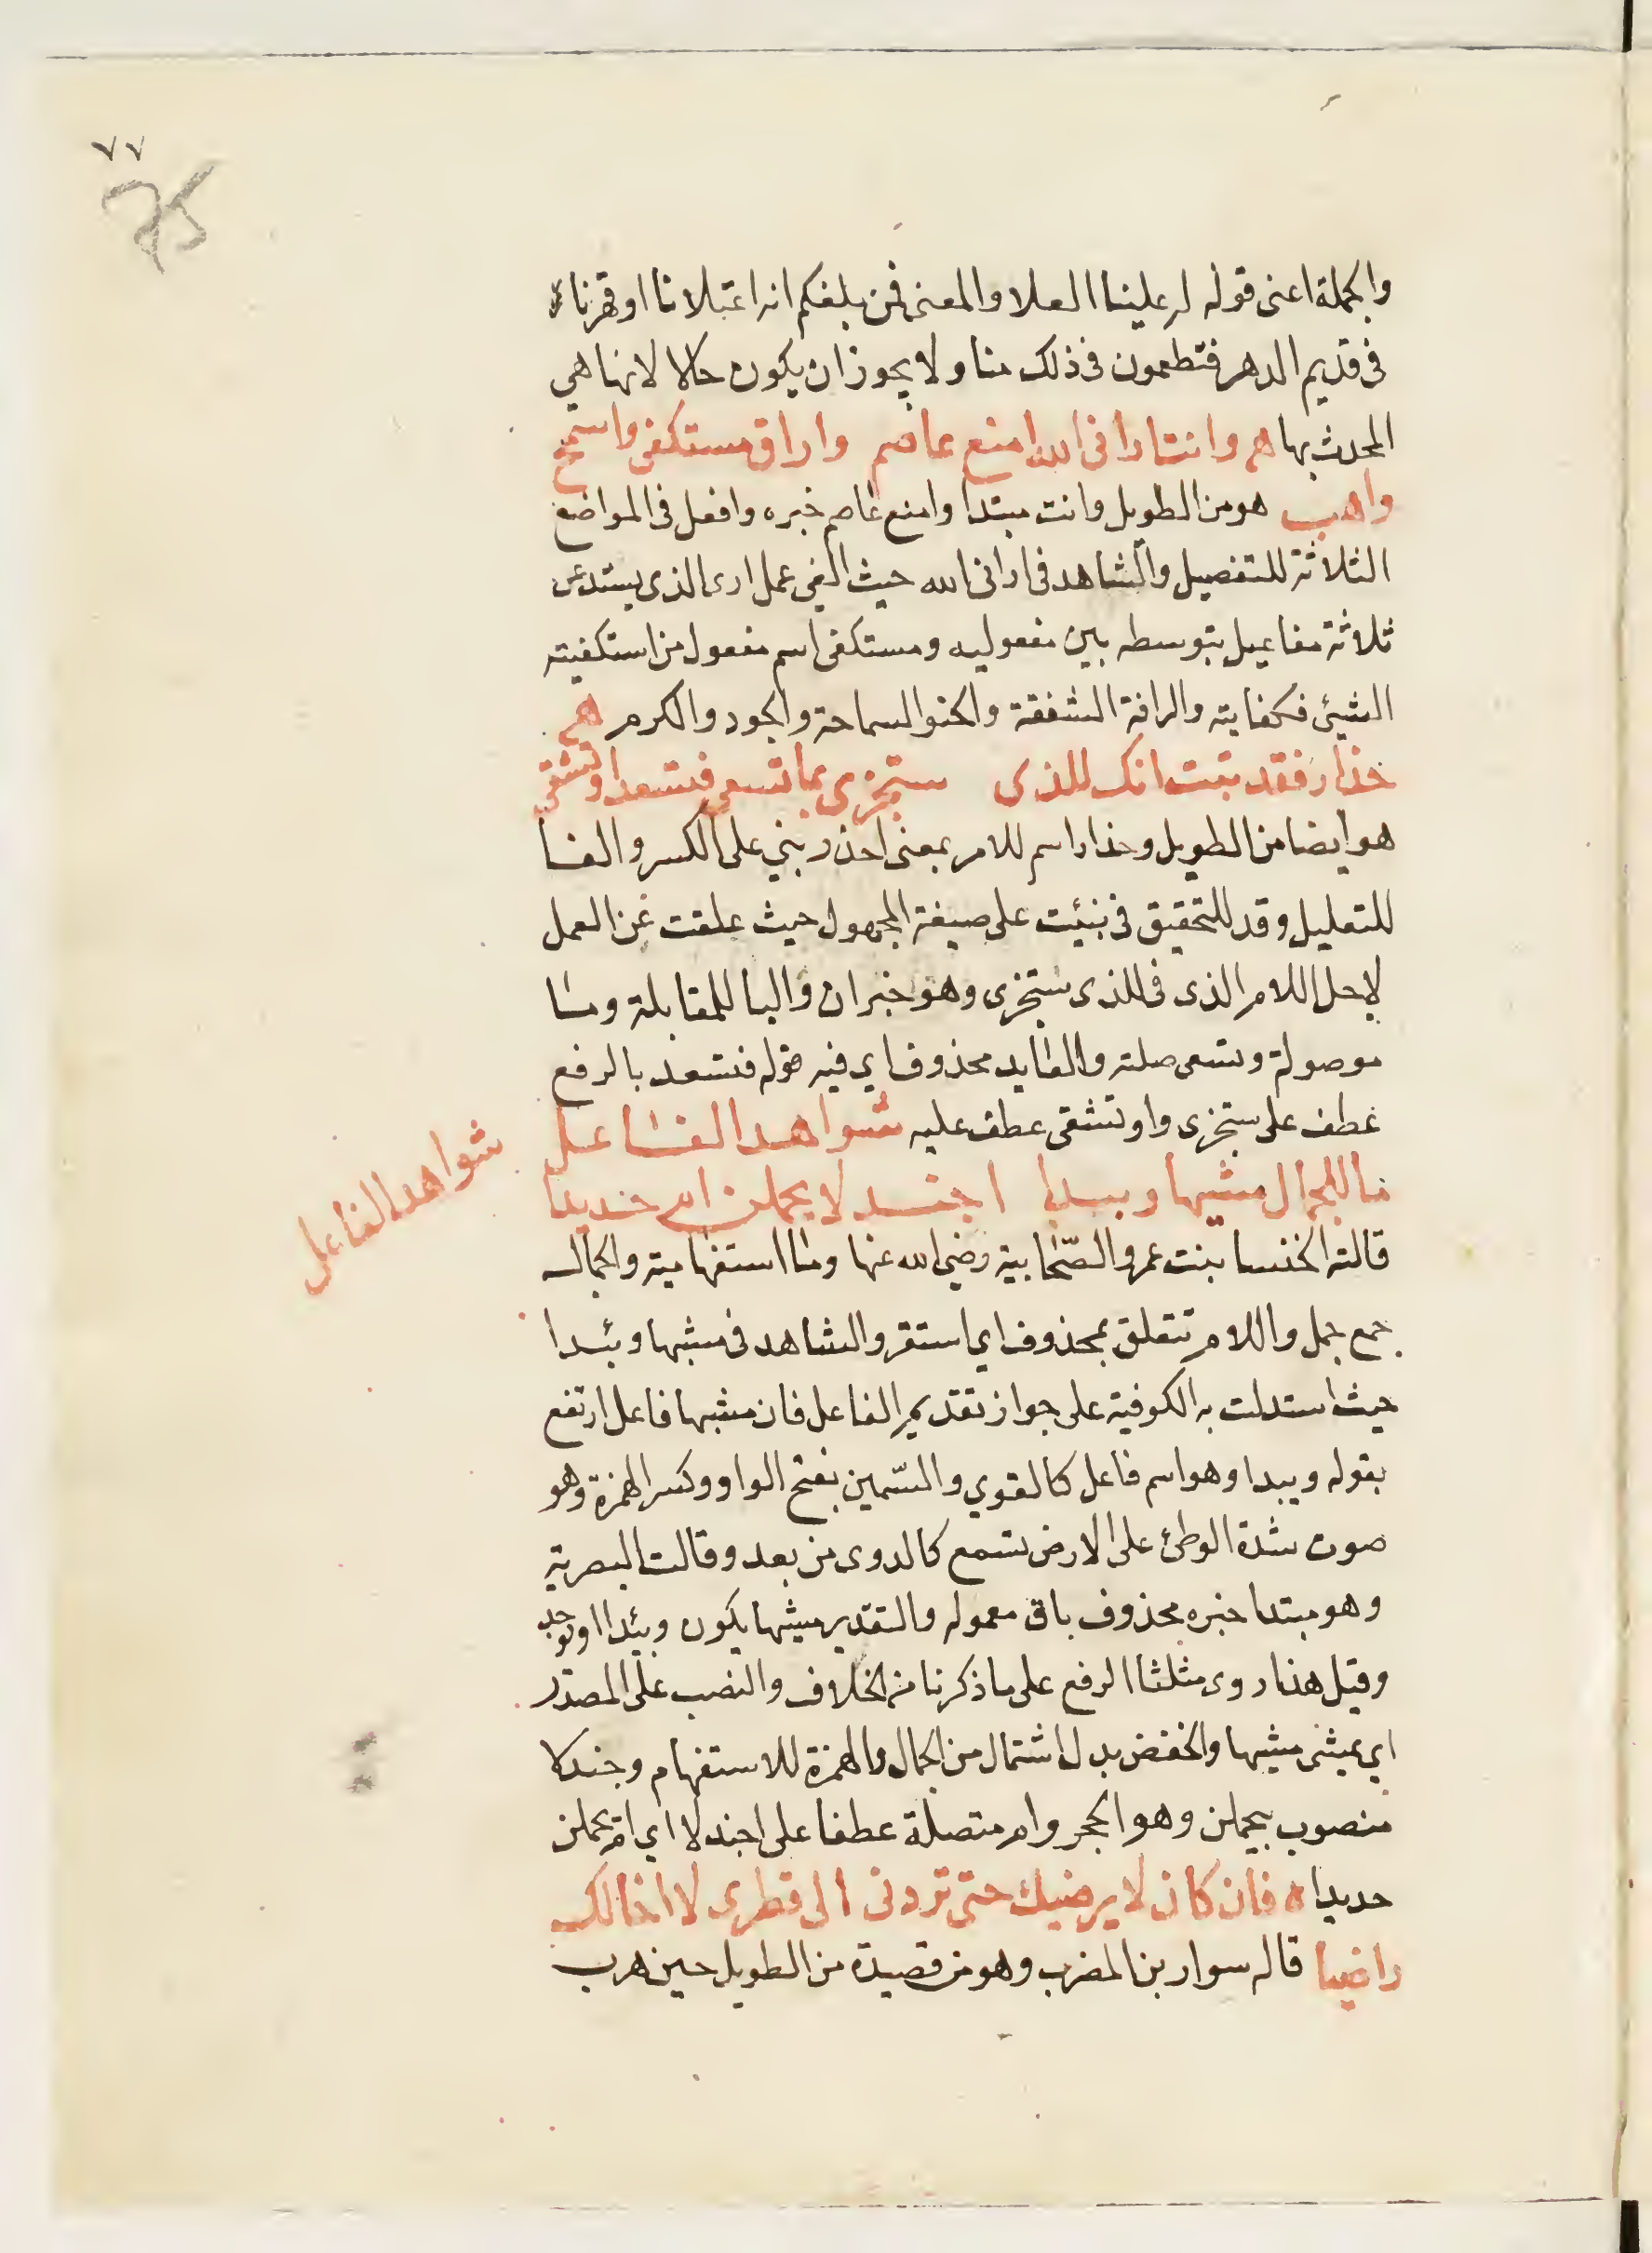 ٧٧
والجملة اعنى قوله له علينا العلا والمعنى فمن بلغكم انه اعتلانا او قهرنا
فى قديم الدهر فتطمعون فى ذلك منا ولا يجوز ان يكون حالا لانها هي
المحدث بها هم وانت اراني الله امنع عاصم واراق مستكفى واسمح
واهب هو من الطويل وانت مبتدا وامنع عاصم خبره وافعل فى المواضع
الثلاثة للتفصيل والشاهد فى ارانى الله حيث الغى عمل ارى الذى يستدعى
ثلاثة مفاعيل بتوسطه بين مفعوليه ومستكفى اسم مفعول من استكفيته
الشيئ فكفايته والرافة الشفقة والحنو السماحة والجود والكرم هم
حذار فقد نبئت انك للذى ستجزى بما تسعى فتسعد او تشقى
هو ايضا من الطويل وحذار اسم للامر بمعنى احذر بني على الكسر والفا
للتعليل وقد للتحقيق فى نبئت على صيغة المجهول حيث علقت عن العمل
لاجل اللام الذى فى للذى ستجزى وهو خبر ان والبا للمقابلة وما
موصولة وتسعى صلته والعايد محذوف اي فيه قوله فتسعد بالرفع
عطف على ستجزى واو تشقى عطف عليه شواهد الفاعل
شواهد الفاعل
ما للجمال مشيها وييدا اجندلا يحملن ام حديدا
قالته الخنسا بنت عمرو الصحابية رضي الله عنها وما استفهامية والجمال
جمع جمل واللام تتعلق بمحذوف اي استقر والشاهد فى مشيها وئيدا
حيث استدلت به الكوفية على جواز تقديم الفاعل فان مشيها فاعل ارتفع
بقوله وييدا وهو اسم فاعل كالقوي والسّمين بفتح الواو وكسر الهمزة وهو
صوت شدة الوطئ على الارض تسمع كالدوى من بعد وقالت البصرية
وهو مبتدا خبره محذوف باق معموله والتقدير مشيها يكون وئيدا او توجد
وقيل هنا روى مثلثا الرفع على ما ذكرنا من الخلاف والنصب على المصدر
اي يمشى مشيها والخفض بدل اشتمال من الجمال والهمزة للاستفهام وجندلا
منصوب بيحملن وهو الحجر وام متصلة عطفا على اجندلا اي ام يحملن
حديدا ه فان كان لا يرضيك حتى تردنى الى قطرى لا اخالك
راضيا قاله سوار بن المضرب وهو من قصيدة من الطويل حين هرب